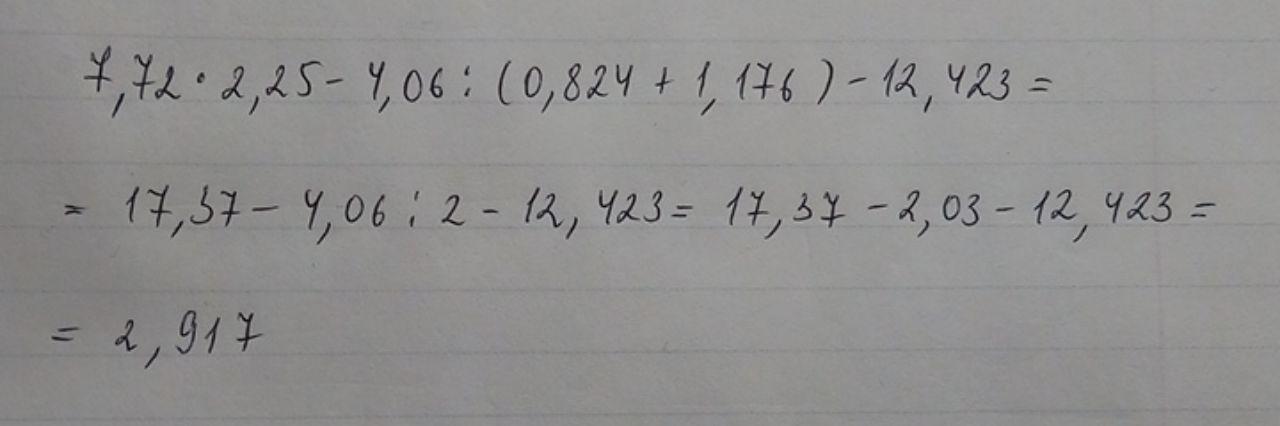 7,72 · 2,25 - 4,06 : (0,824 + 1,176) - 12,423 =
= 17,37 - 4,06 : 2 - 12,423 = 17,37 - 2,03 - 12,423 =
= 2,917